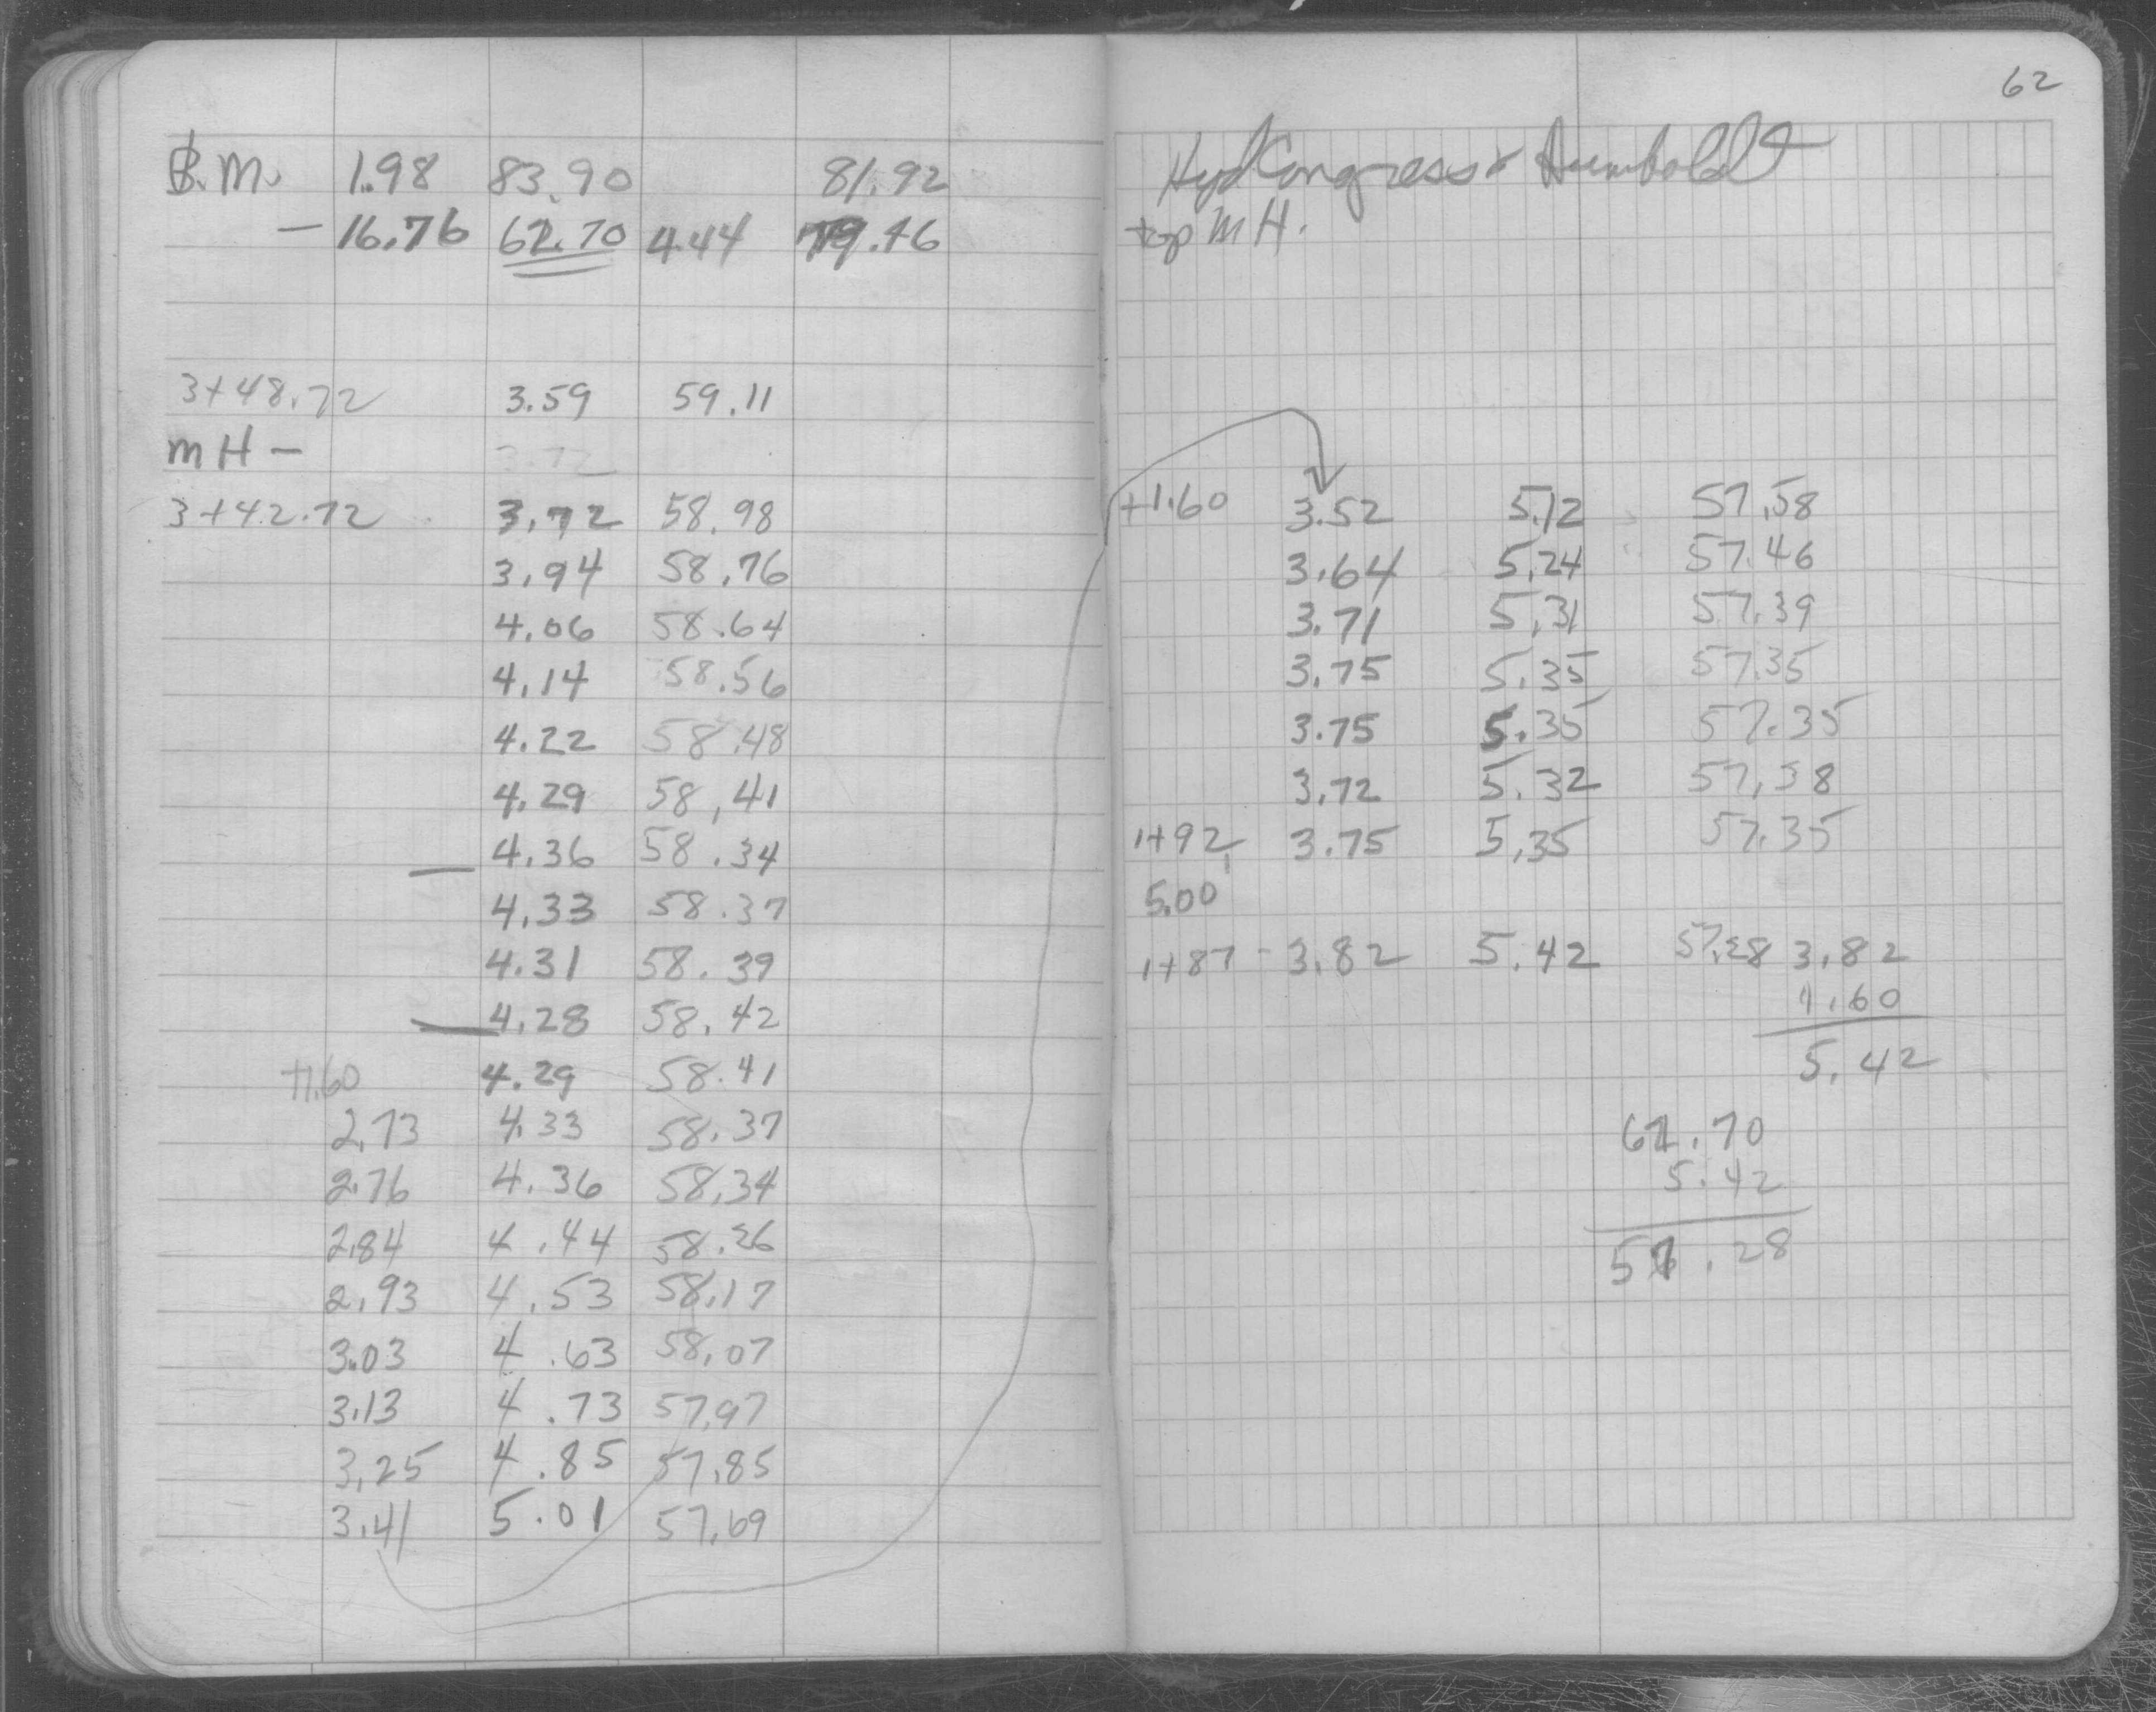 B.M. 1.98 83.90 81.92
- 16.76 62.70 4.44 79.46
3+48.72 3.59 59.11
MH - 3.72
3+42.72 3.72 58.98
3.94 58.76
4.06 58.64
4.14 58.56
4.22 58.48
4.29 58.41
4.36 58.34
4.33 58.37
4.31 58.39
4.28 58.42
+1.60 4.29 58.41
2.73 4.33 58.37
2.76 4.36 58.34
2.84 4.44 58.26
2.93 4.53 58.17
3.03 4.63 58.07
3.13 4.73 57.97
3.25 4.85 57.85
3.41 5.01 57.69
62
Hyd Congress & Humboldt
top MH.
+1.60 3.52 5.12 57.58
3.64 5.24 57.46
3.71 5.31 57.39
3.75 5.35 57.35
3.75 5.35 57.35
3.72 5.32 57.38
1+92 3.75 5.35 57.35
5.00
1+87 - 3.82 5.42 57.28 3.82
1.60
5.42
62.70
5.42
57.28